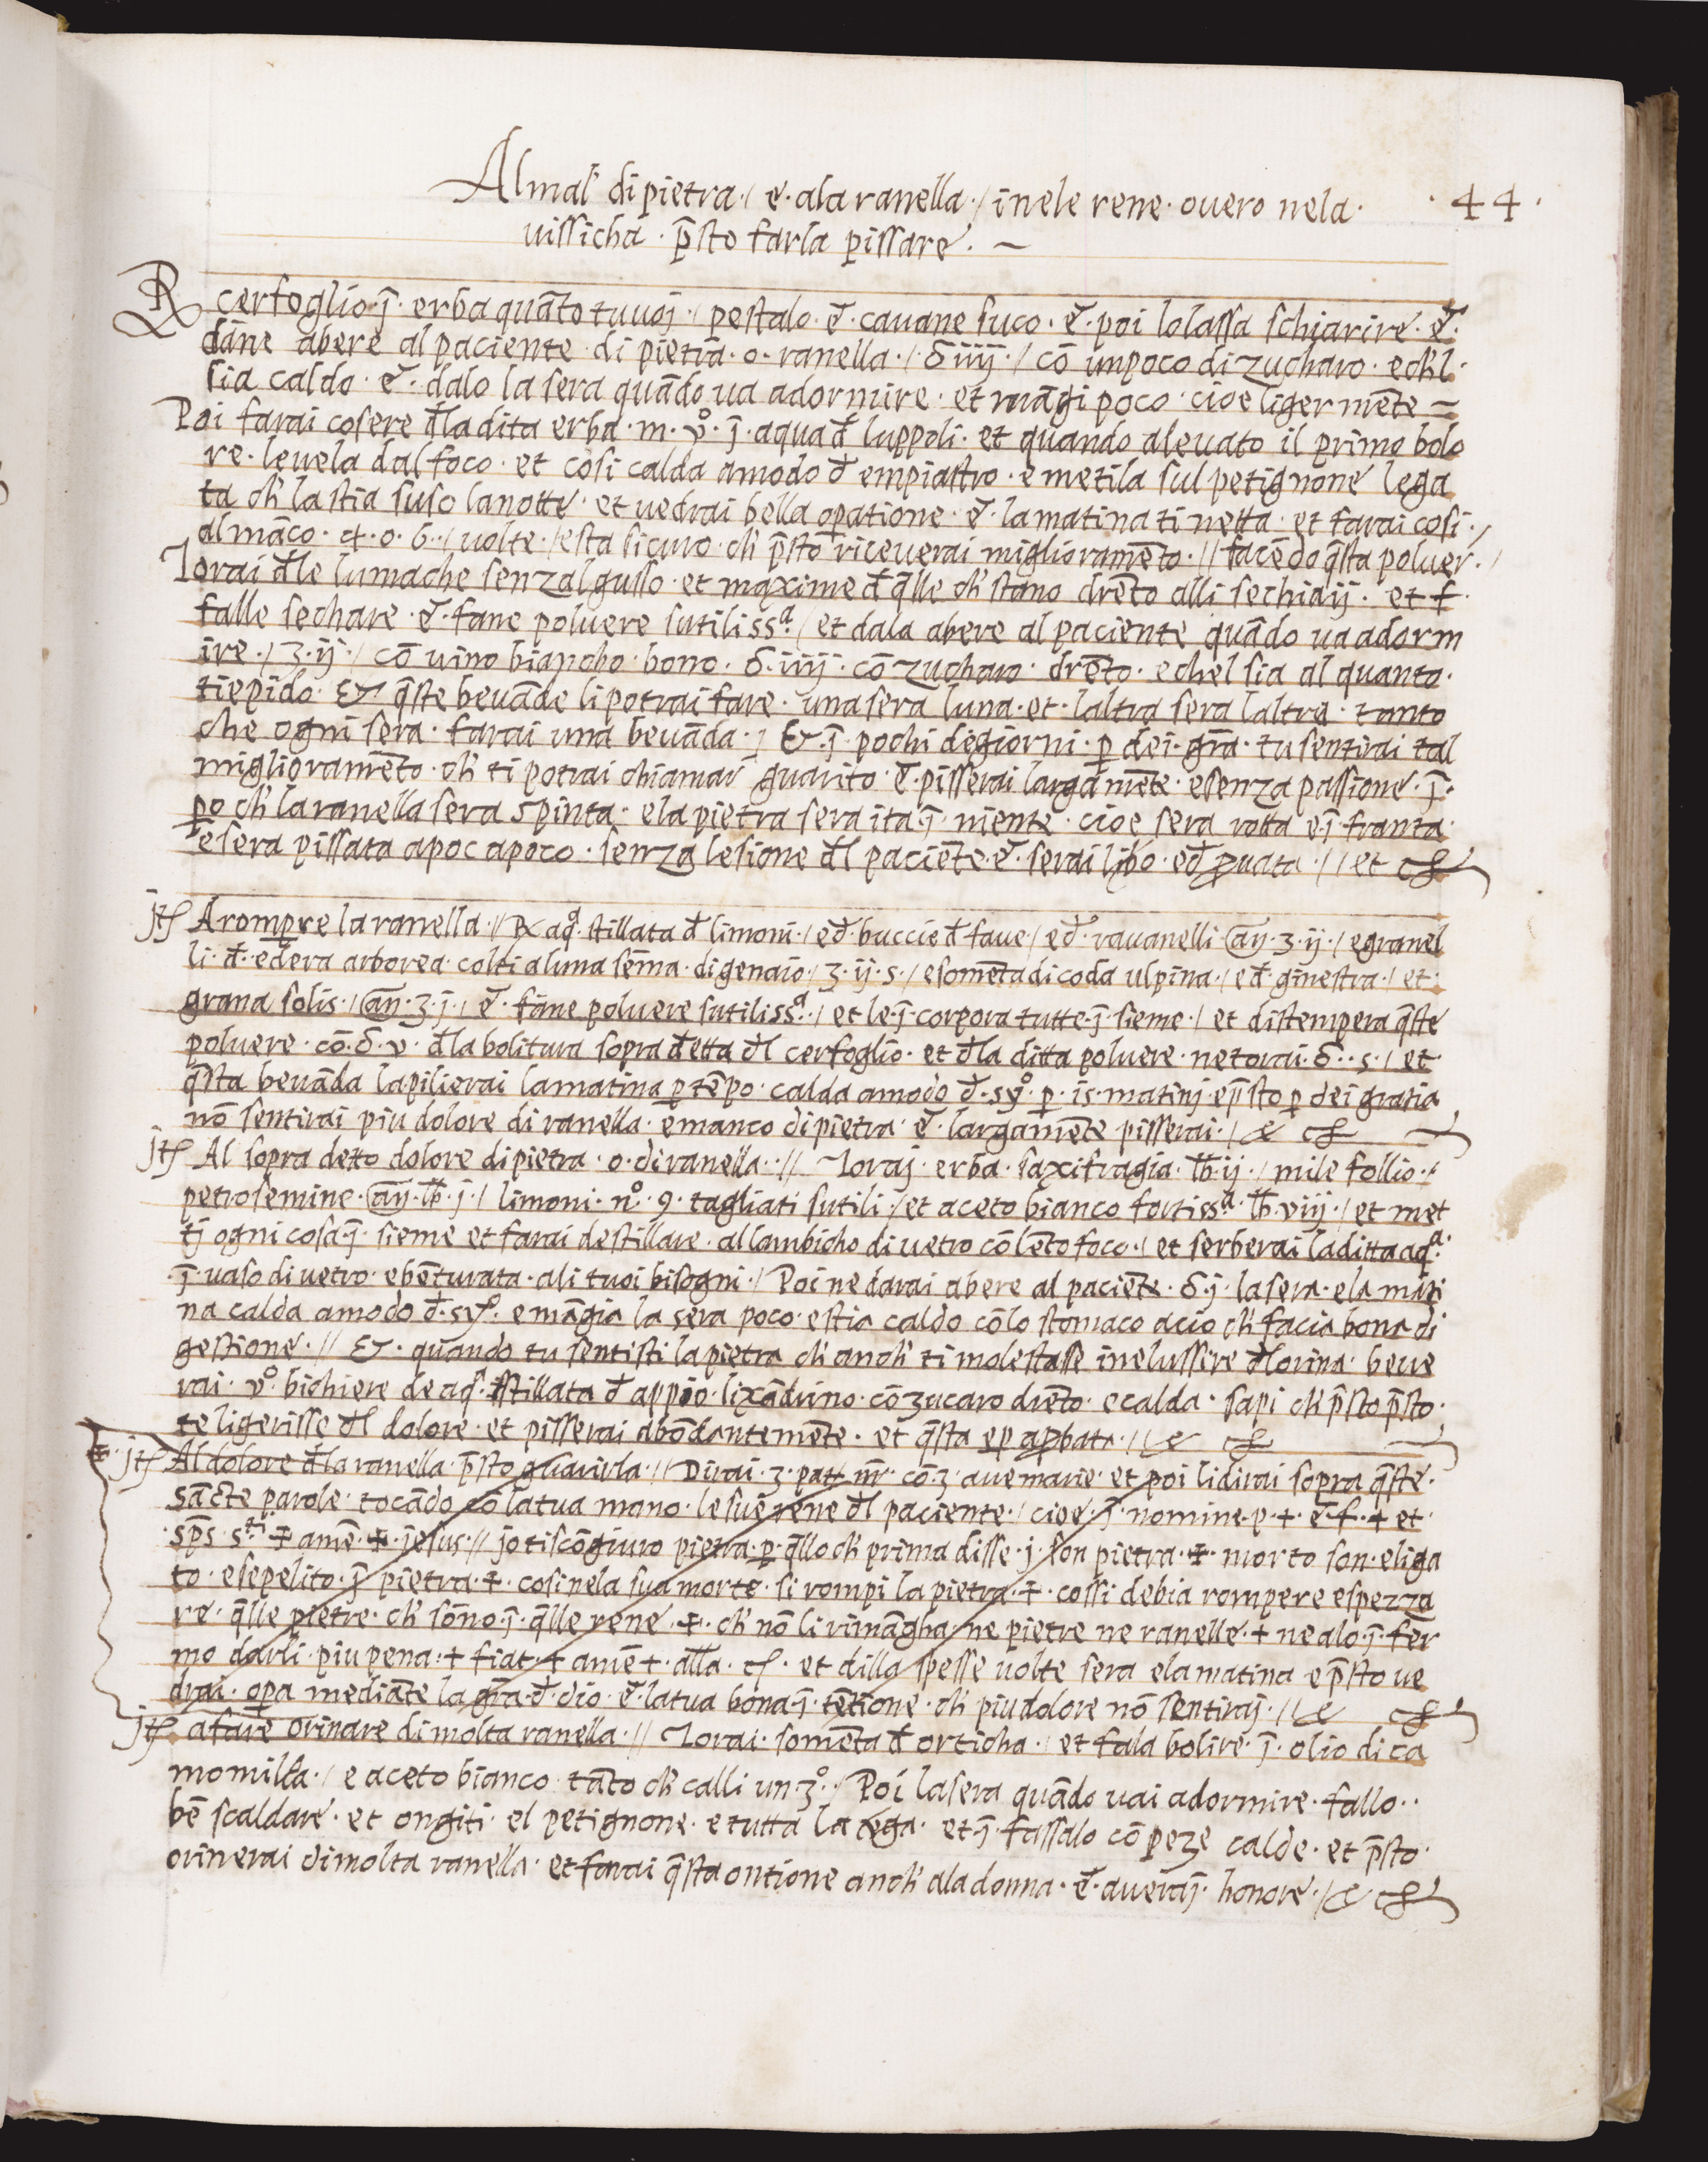 Al mal' di pietra ·/ e · ala ranella ·/ in ele rene · overo nela · · 44 ·
vissicha · p̄sto farla pissare · ~
℞ cerfoglio · j̄ · erba quāto tu uoj ·/ pestalo · e · cavane suco · e · poi lo lassa schiarire · e ·
dāne abere al paciente · di pietra · o · ranella ·/ ℥ iiij ·/ cō un poco di zucharo · e ch'l ·
sia caldo · e · dalo la sera quādo ua adormire · et māgi poco · cioe ligermēte ~
Poi farai cosere đla dita erba · m · vº · j̄ · aqua đ luppoli · et quando a levato il primo bolo
re · levela dal foco · et cosi calda amodo đ empiastro · e metila sul petignone lega
ta ch' la stia suso la notte · et vedrai bella opatione · e · la matina ti netta · et farai cosi ·/
al māco · 4 · o · 6 ·/ uolte ·/ e sta sicuro · ch' p̄sto riceverai miglioramēto · // facēdo q̄sta poluer ·/
Torai đle lumache senzal gusso · et maxime đ q̄lle ch' stano drēto alli sechiaij · et f ·
falle sechare · e · fane polvere sutilissᵃ ·/ et dala abere al paciente quādo ua adorm
ire ·/ ʒ · ij ·/ cō uino biancho bono · ℥ · iiij · cō zucharo · drēto · e chel sia al quanto ·
tiepido · & q̄ste bevāde li potrai fare · una sera luna · et · laltra sera laltra · tanto
che ogni sera · farai una bevāda · j & · j̄ · pochi de giorni · p dei · grā · tu sentirai tal
miglioramēto · ch' ti potrai chiamar guarito · e · pisserai largamēte · e senza passione · j̄ ·
po ch' la ranella sera spinta · e la pietra sera ita · j̄ · niente · cioe sera rotta e · j̄ · franta ·
e sera pissata apoc apoco · senza lesione đl paciēte · e · serai libo · eđ pvata ·/ / et
jtʃ A rompre la ranella ·// ℞ aqᵃ stillata đ limoni ·/ eđ · buccie đ fave / eđ · ravanelli · añ · ʒ · ij ·/ e granel
li · đ · edera arborea · colti a luna sēma · di genaio ·/ ʒ · ij · s ·/ e somēta di coda vlpina ·/ eđ · ginestra ·/ et ·
grana solis ·/ añ · ʒ · j ·/ e · fāne polvere sutilissᵃ ·/ et le · j̄ · corpora tutte · j̄ · sieme ·/ et distempera q̄ste
polvere · cō · ℥ · v · đla bolitura sopra đetta đl cerfoglio · et đla ditta polvere · ne torai · ℥ · · s ·/ et ·
q̄sta bevāda la pilierai la matina p tēpo · calda amodo đ · syº · p · is · matinj · e p̄sto p dei gratia
nō sentirai piu dolore di ranella · e manco di pietra · e · largamēte pisserai ·/ &
jtʃ Al sopra detto dolore di pietra · o · di ranella · // Toraj · erba · saxifragia · ℔ · ij ·/ mile follio ·/
petrosemine · añ · ℔ · j ·/ limoni · nº · 9 · tagliati sutili ·/ et aceto bianco fortissᵃ · ℔ · viij ·/ et met
tj ogni cosa · j̄ · sieme et farai destillare · al lambicho di vetro cō lēto foco ·/ et serberai la ditta aqᵃ ·
· j̄ · vaso di vetro · e bēturata · ali tuoi bisogni ·/ Poi ne darai abere al paciēte · ℥ · j · la sera · e la mati
na calda amodo đ · syº · e māgia la sera poco · e stia caldo cō lo stomaco acio ch' facia bona di
gestione · // & · quando tu sentisti la pietra ch' anch' ti molestasse in elussire đlorina · beve
rai · vº · bichiere de aq̄ · stillata đ appio · lixādrino · cō zucaro drēto · e calda · sapi ch' p̄sto p̄sto ·
te ligerisse đl dolore · et pisserai abōdantemēte · et q̄sta e p apbata ·/ / &
‡ · jtʃ Al dolore đla ranella · p̄sto guarirla · // Dirai · 3 · pat nr̄ · cō · 3 · ave marie · et poi li dirai sopra q̄ste ·
sācte parole · tocādo cō la tua mano · le sue rene đl paciente ·/ cioe · j̄ · nomine · p · + · e · f · + et ·
· sp̄s · sᵗⁱ · ‡ amē · ‡ · jesus · // jo ti scōgiuro pietra · p · q̄llo ch' prima disse · j · son pietra · ‡ · morto son · e liga
to · e sepelito · j̄ pietra · ‡ · cosi nela sua morte · si rompi la pietra · ‡ · cossi debia rompere e spezza
re · q̄lle pietre · ch' sōno · j̄ · q̄lle rene · ‡ · ch' nō li rimāgha · ne pietre ne ranelle · + ne alo · j̄ · fer
mo darli · piu pena · + fiat · + amē + · alla · et dilla spesse uolte sera e la matina e p̄sto ve
drai · opa mediāte la grā · đ · dio · e · la tua bona · j̄ · tētione · ch' piu dolore nō sentiraj ·/ / &
jtʃ a fare orinare di molta ranella · // Torai · somēta đ orticha ·/ et fala bolire · j̄ · olio di ca
momilla ·/ e aceto bianco tāto ch' calli un · 3º ·/ Poi la sera quādo vai adormire · fallo · ·
bē scaldare · et ongiti · el petignone · e tutta la · et · j̄ · fassalo cō peze calde · et p̄sto ·
orinerai di molta ranella · et farai q̄sta ontione anch' ala donna · e · averaj · honore ·/ &